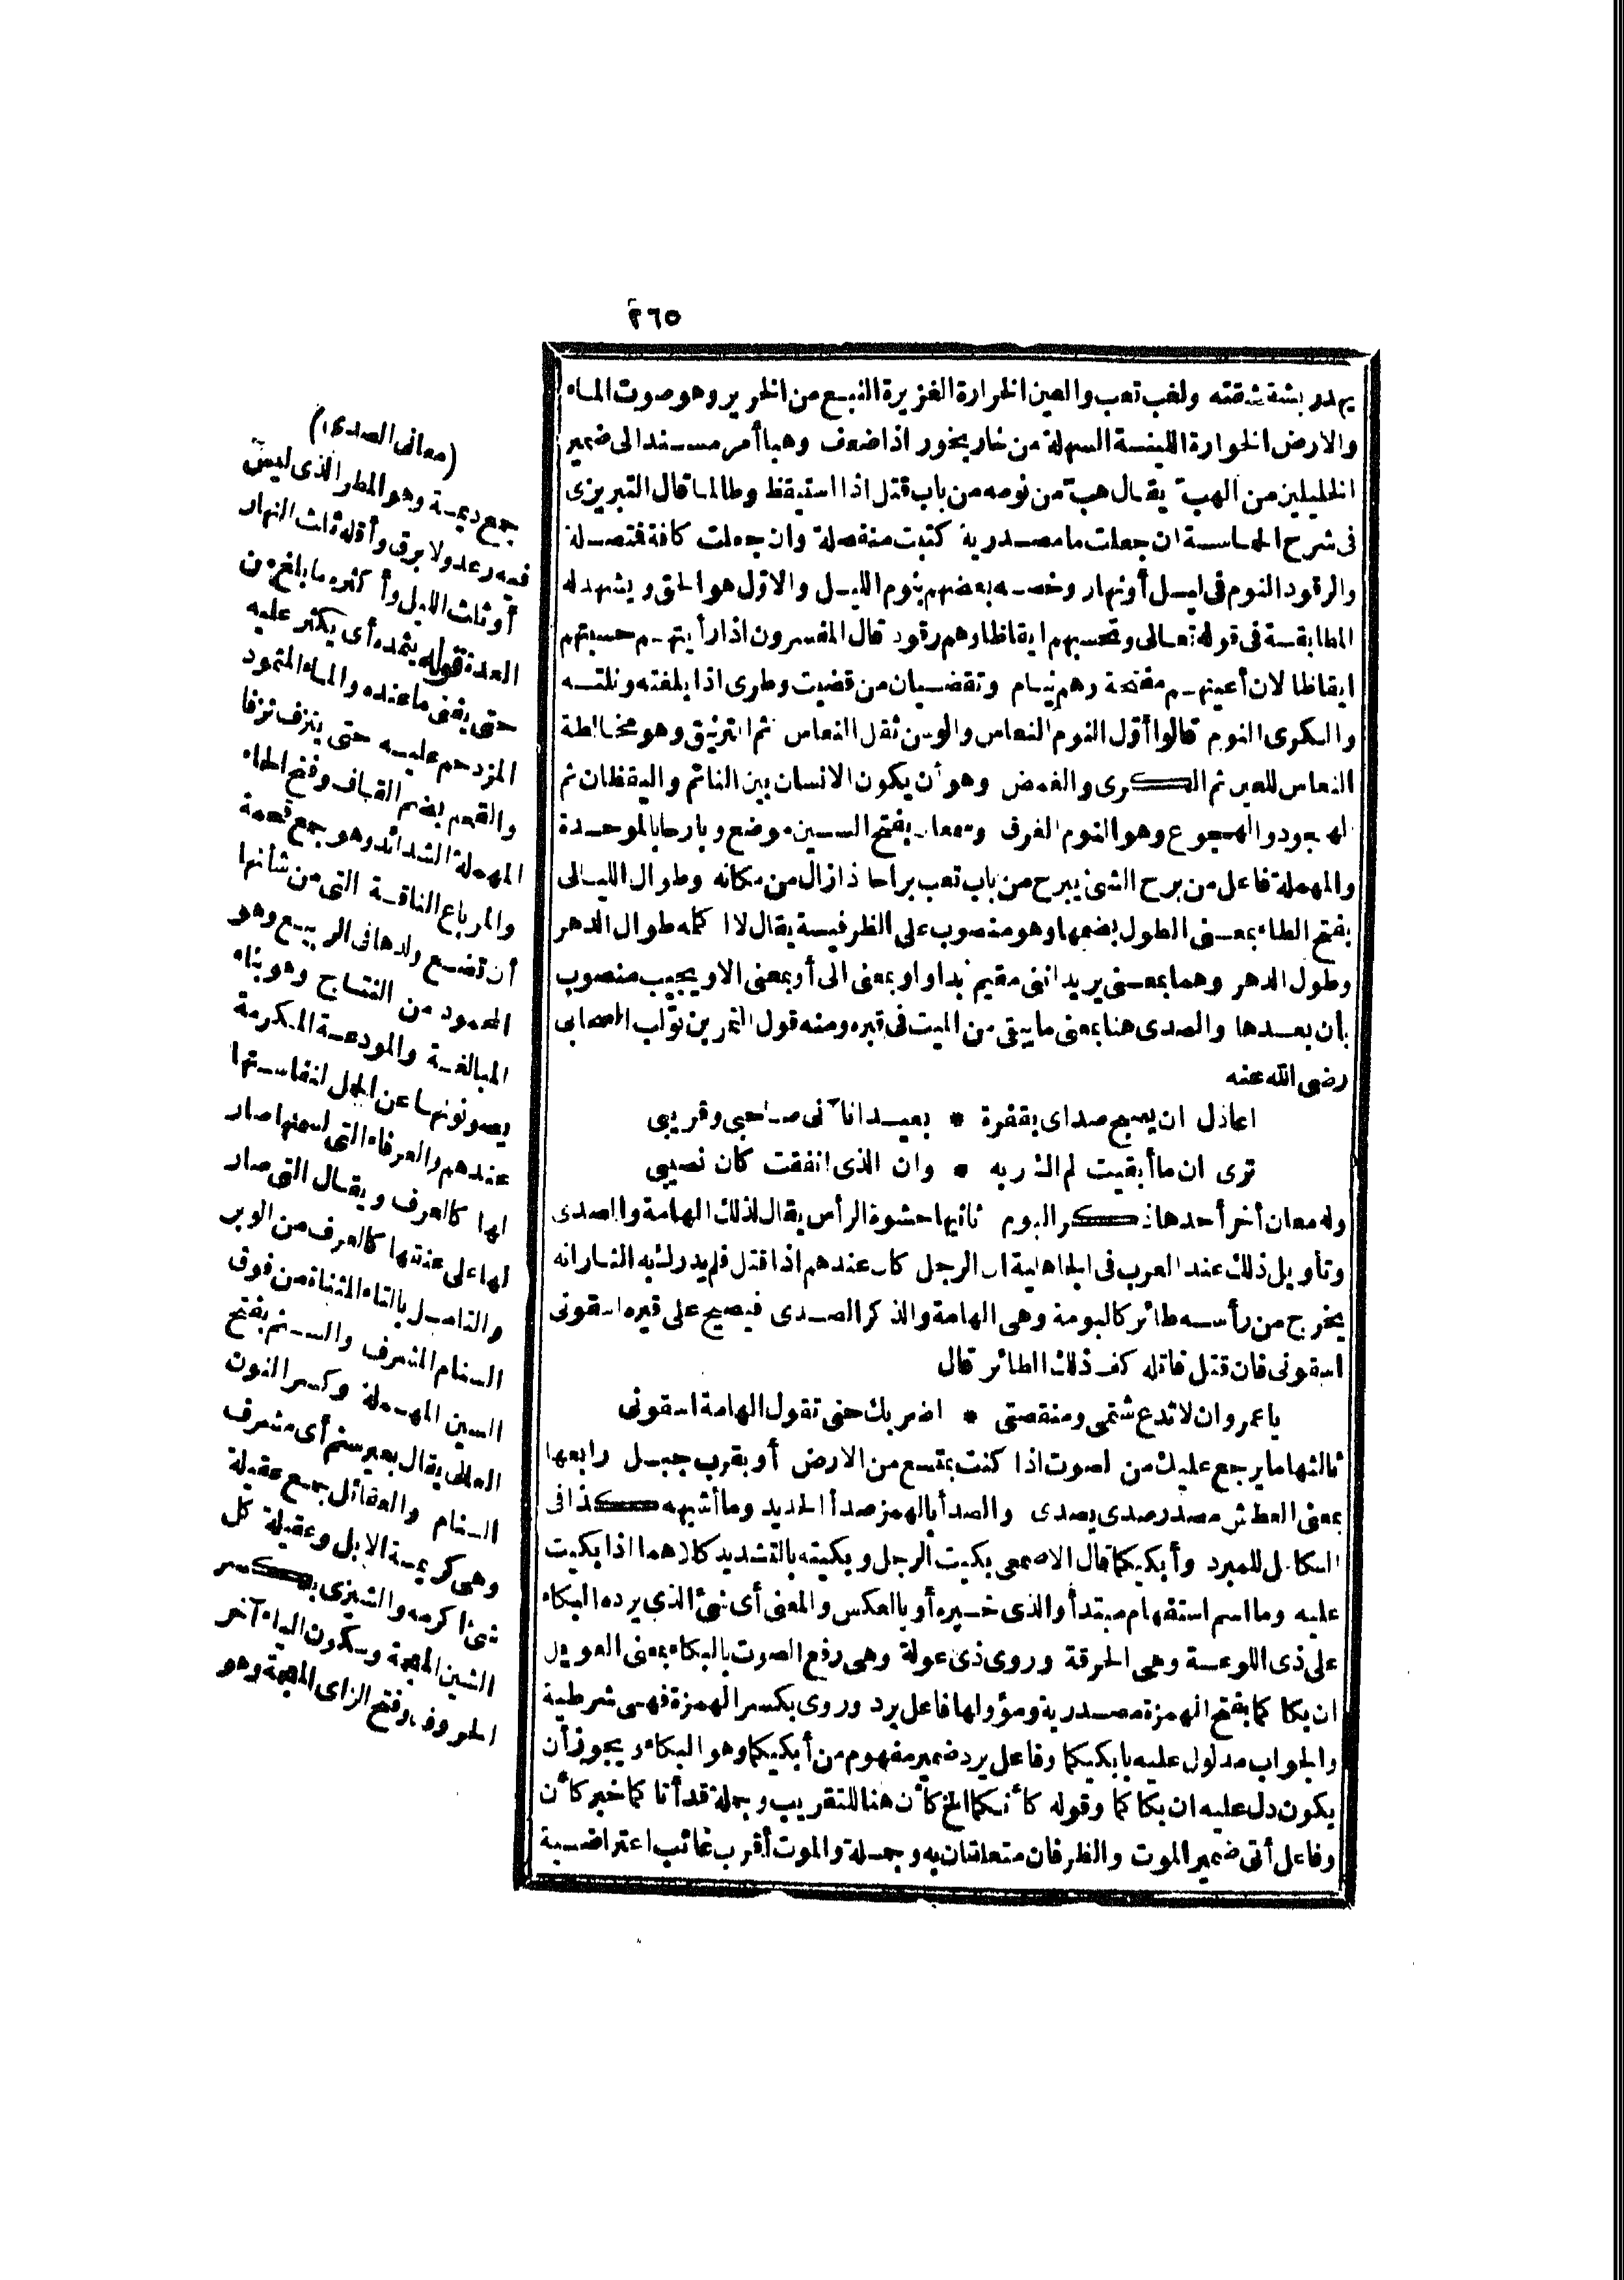 ٢٦٥
يهدر بشقشقته ولغب تعب والعين الخرارة الغزيرة النبع من الخرير وهو صوت الماء
والارض الخوارة اللينة السهلة من خار يخور اذا ضعف وهبا أمر مسند الى ضمير
الخليلين من الهب يقال هبّ من نومه من باب قتل اذا استيقظ وطالما قال التبريزى
فى شرح الحماسة ان جعلت ما مصدرية كتبت منفصلة وان جعلت كافة فتصلة
والرقود النوم فى ليل أو نهار وخصه بعضهم بنوم الليل والاوّل هو الحق ويشهد له
المطابقة فى قوله تعالى وتحسبهم ايقاظا وهم رقود قال المفسرون اذا رأيتهم حسبتهم
ايقاظا لان أعينهم مفتحة وهم نيام وتقضيان من قضيت وطرى اذا بلغته ونلته
والكرى النوم قالوا أوّل النوم النعاس والوسن ثقل النعاس ثم الترنيق وهو مخالطة
النعاس للعين ثم الكرى والغمض وهو أن يكون الانسان بين النائم واليقظان ثم
الهجود والهجوع وهو النوم الغرق وسمعان بفتح السين موضع وبارحا بالموحدة
والمهملة فاعل من برح الشئ يبرح من باب تعب براحا اذا زال من مكانه وطوال الليالى
بفتح الطاء بمعنى الطول بضمها وهو منصوب على الظرفية يقال لا أكله طوال الدهر
وطول الدهر وهما بمعنى يريد اننى مقيم أبدا واو بمعنى الى أو بمعنى الا ويجيب منصوب
بأن بعدها والصدى هنا بمعنى ما يبقى من الميت فى قبره ومنه قول النمر بن تواب الصحابى
رضى الله عنه
اعاذل ان يصبح صداى بقفرة * بعيدا نآنى صاحبى وقريبى
ترى ان ما أبقيت لم الـ ربه * وان الذى انفقت كان نصيبى
وله معان أخر أحدها ذكر البوم ثانيها حشوة الرأس يقال لذلك الهامة والصدى
وتأويل ذلك عند العرب فى الجاهلية ان الرجل كان عندهم اذا قتل فلم يدرك به الثار انه
يخرج من رأسه طائر كالبومة وهى الهامة والذكر الصدى فيصيح على قبره اسقونى
اسقونى فان قتل قاتله كف ذلك الطائر قال
يا عمرو ان لا تدع شتمى ومنقصتى * اضربك حتى تقول الهامة اسقونى
ثالثها ما يرجع عليك من الصوت اذا كنت بمتسع من الارض أو بقرب جبل رابعها
بمعنى العطش مصدر صدى يصدى والصدأ بالهمز صدأ الحديد وما أشبهه كذا فى
الكامل للمبرد وأبكيكما قال الاصمعى بكيت الرجل وبكيته بالتشديد كلاهما اذا بكيت
عليه وما اسم استفهام مبتدأ والذى خبره أو بالعكس والمعنى أى شئ الذى يرده البكاء
على ذى اللوعة وهى الحرقة وروى ذى عولة وهى رفع الصوت بالبكاء بمعنى العويل
ان بكا كما بفتح الهمزة مصدرية ومؤولها فاعل يرد وروى بكسر الهمزة فهى شرطية
والجواب مدلول عليه بابكيكما وفاعل يرد ضمير مفهوم من أبكيكما وهو البكاء ويجوز أن
يكون دل عليه ان بكا كما وقوله كأنكما الخ كأن هنا للتقريب وجملة قد أتا كما خبر كأن
وفاعل أتى ضمير الموت والظرفان متعلقان به وجملة والموت أقرب غائب اعتراضية
(معانى الصدى)
جمع ديمة وهو المطر الذى ليس
فيه رعد ولا برق وأقله ثلث النهار
أو ثلث الليل وأكثره ما بلغ من
العدة قوله يثمده أى يكثر عليه
حتى يفنى ما عنده والماء المثمود
المزدحم عليه حتى ينزف نزفا
والقحم بضم القاف وفتح الحاء
المهملة الشدائد وهو جمع قحمة
والمرباع الناقة التى من شأنها
أن تضع ولدها فى الربيع وهو
المحمود من النتاج وهو بناء
المبالغة والمودعة المكرمة
يصونونها عن الحمل لنفاستها
عندهم والعرفاء التى لسمنها صار
لها كالعرف ويقال التى صار
لها على عنقها كالعرف من الوبر
والتامل بالتاء المثناة من فوق
السنام المشرف والسنم بفتح
السين المهملة وكسر النون
العالى يقال بعير سنم أى مشرف
السنام والعقائل جمع عقيلة
وهى كريمة الابل وعقيلة كل
شئ اكرمه والشيزى بكسر
الشين المعجمة وسكون الياء آخر
الحروف وفتح الزاى المعجمة وهو